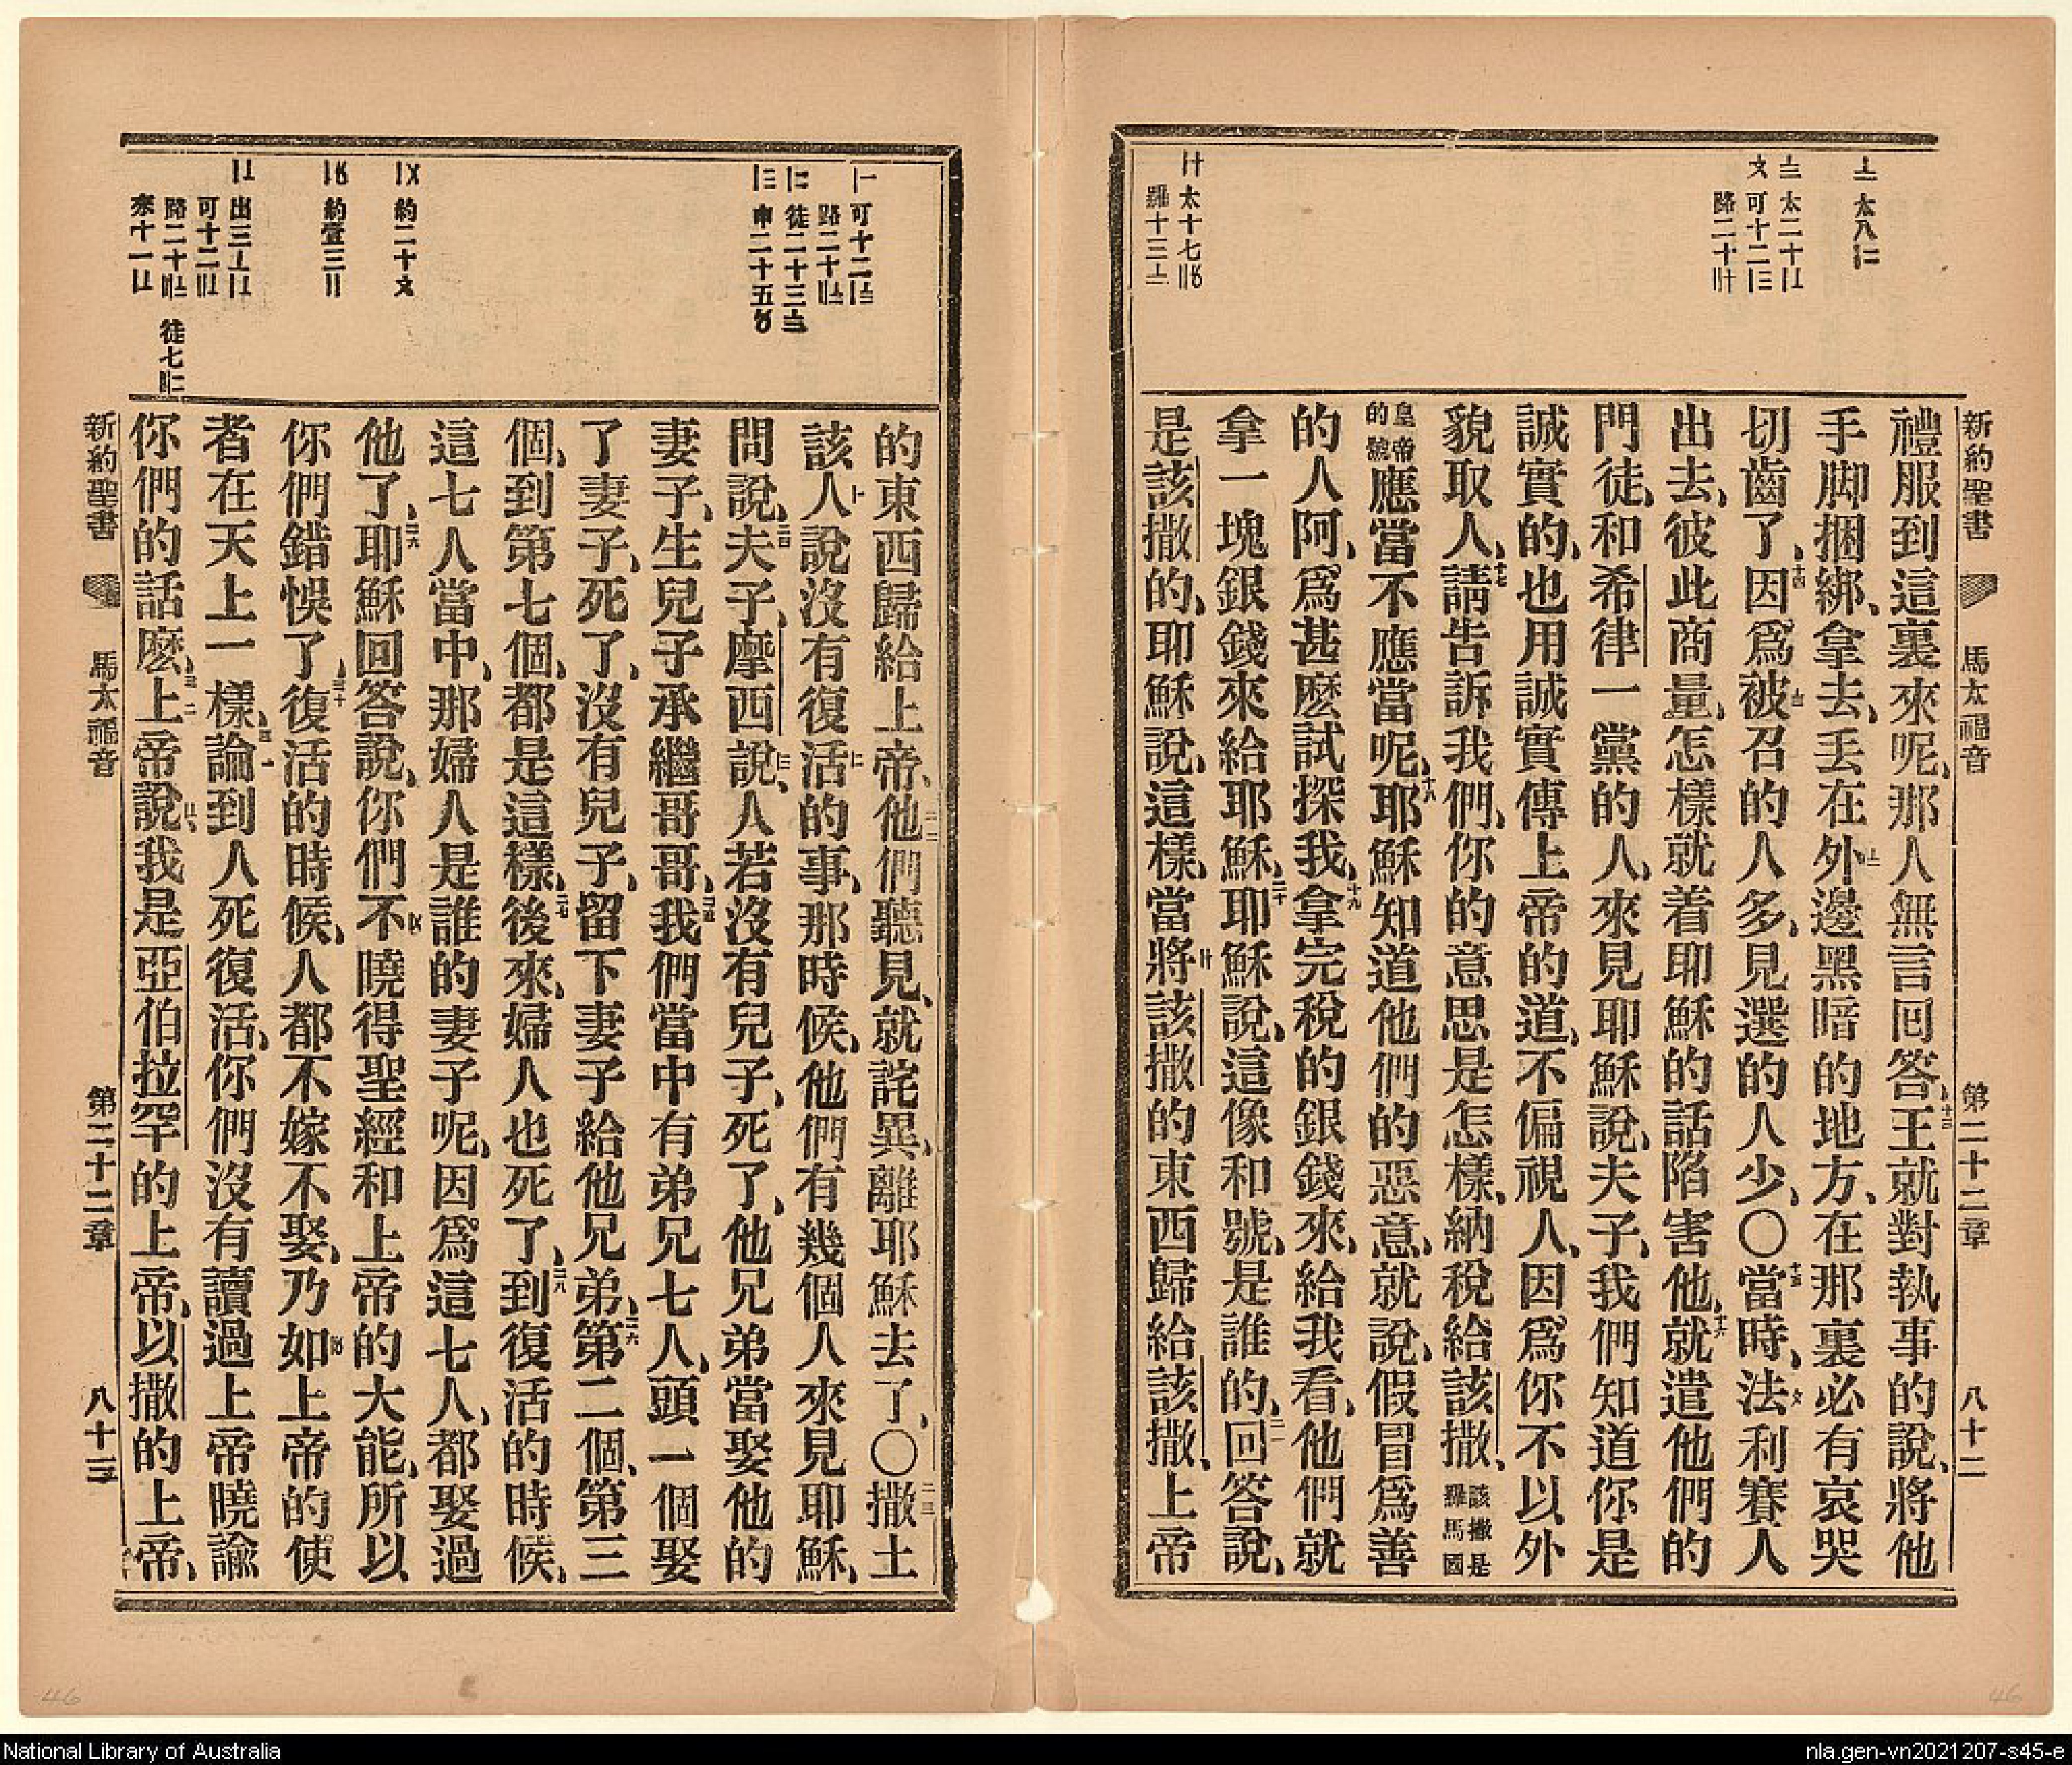 新約聖書 馬太福音 第二十二章 八十二
〦太八〢二
〨太二十〡〦
〤可十二〡三
路二十〢十
〡十太十七〢〥
羅十三〦
禮服到這裏來呢、那人無言回答、十三王就對執事的說、將他
手脚捆綁、拿去、丟在外邊黑暗的地方、在那裏必有哀哭
切齒了、十四因爲被召的人多、見選的人少、〇十五當時、法利賽人
出去、彼此商量、怎樣就着耶穌的話陷害他、十六就遣他們的
門徒、和希律一黨的人、來見耶穌說、夫子、我們知道你是
誠實的、也用誠實傳上帝的道、不偏視人、因爲你不以外
貌取人、十七請告訴我們、你的意思是怎樣、納稅給該撒、該撒是羅馬國
皇帝的號應當不應當呢、十八耶穌知道他們的惡意、就說、假冒爲善
的人阿、爲甚麽試探我、十九拿完稅的銀錢來、給我看、他們就
拿一塊銀錢來給耶穌、二十耶穌說、這像和號、是誰的、二一回答說、
是該撒的、耶穌說、這樣、當將該撒的東西歸給該撒、上帝
的東西歸給上帝、二二他們聽見、就詫異、離耶穌去了、〇二三撒土
該人說沒有復活的事、那時候、他們有幾個人來見耶穌、
問說、二四夫子、摩西說、人若沒有兒子、死了、他兄弟當娶他的
妻子、生兒子承繼哥哥、二五我們當中有弟兄七人、頭一個娶
了妻子、死了、沒有兒子、留下妻子給他兄弟、二六第二個、第三
個、到第七個、都是這樣、二七後來、婦人也死了、二八到復活的時候、
這七人當中、那婦人是誰的妻子呢、因爲這七人、都娶過
他了、二九耶穌回答說、你們不曉得聖經和上帝的大能、所以
你們錯悞了、三十復活的時候、人都不嫁不娶、乃如上帝的使
者在天上一樣、三一論到人死復活、你們沒有讀過上帝曉諭
你們的話麽、三二上帝說、我是亞伯拉罕的上帝、以撒的上帝、
新約聖書 馬太福音 第二十二章 八十三
National Library of Australia
nla.gen-vn2021207-s45-e
46
46